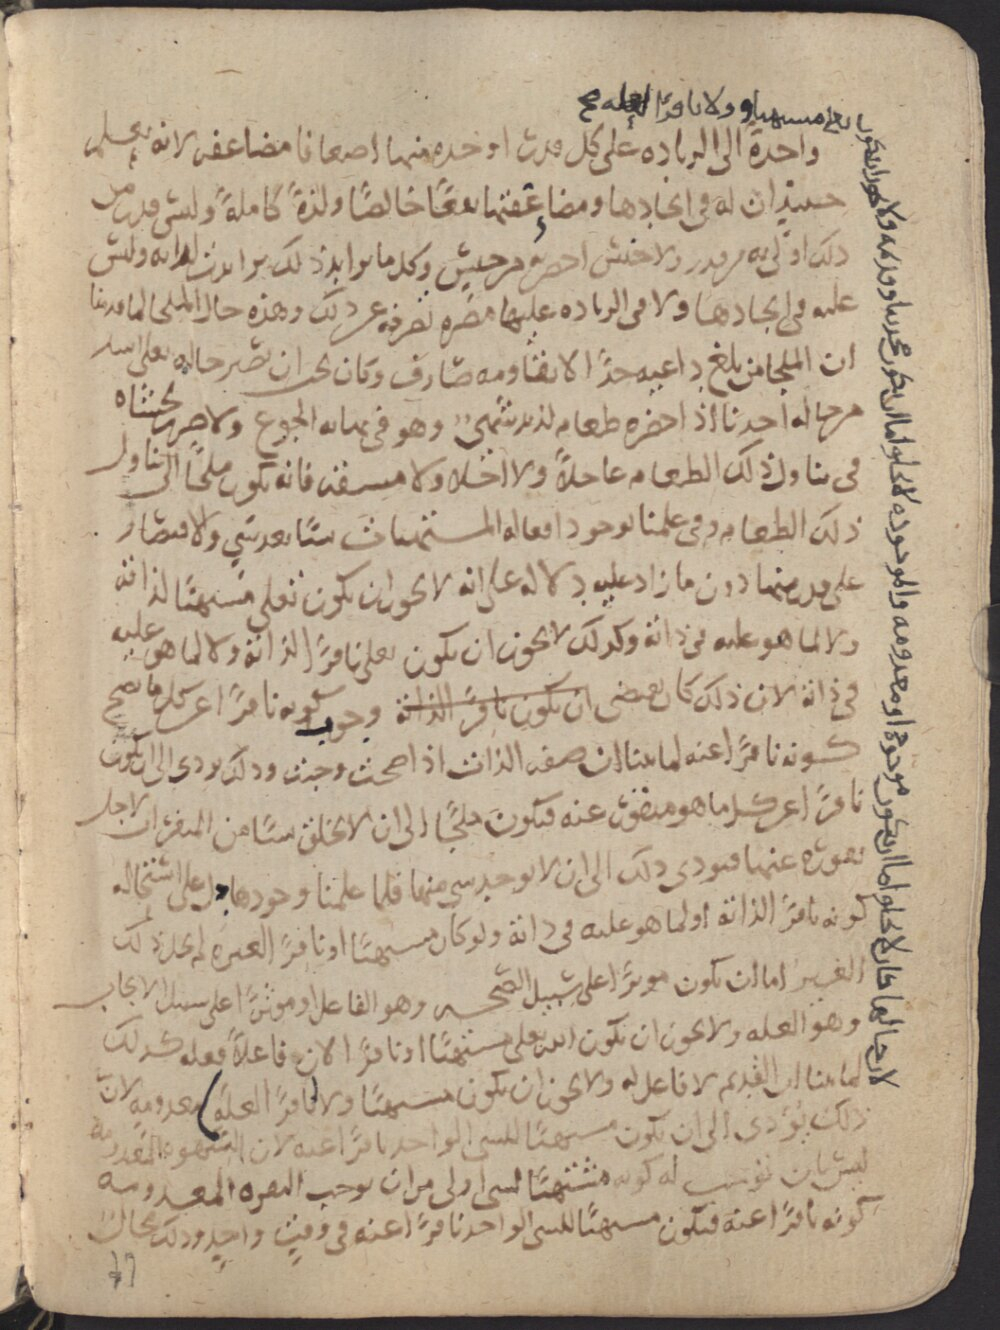 واحدة الى الزياده على كل قدر اوجده منها اضعافا مضاعفه لانه يعلم
حينئذ ان له في ايجادها ومضاعفتها نفعًا خالصًا ولذةً كاملةً وليس قدر من
ذلك اولى به من قدر ولا جنس احض به من جنس وكلما يزايد ذلك تزايدت لذاته وليس
عليه في ايجادها ولا في الزياده عليها مضره تصرفه عن ذلك وهذه حال الملجا لما قدمنا
ان الملجا من بلغ داعيه حدًا لا يقاومه صارف وكان يجب ان تصير حاله تعلى اشد
من حاله احدنا اذا حضره طعام لذيذ شهي وهو في نهايه الجوع ولا ضرر يخشاه
في تناول ذلك الطعام عاجلاً ولا اجلا ولا مشقه فانه يكون ملجًا الى تناول
ذلك الطعام وفي علمنا بوجود افعاله المشتهيات شيئا بعد شي والاقتصار
على قدر منها دون ما زاد عليه دلاله على انه لا يجوز ان يكون تعلى مشتهيًا لذاته
ولا لما هو عليه في ذاته وكذلك لا يجوز ان يكون تعلى نافرًا لذاته ولا لما هو عليه
في ذاته لان ذلك كان يقتضي ان يكون نافرًا لذاته وجوب كونه نافرًا عن كل ما يصح
كونه نافرًا عنه لما بينا ان صفه الذات اذا صحت وجبت وذلك يودي الى ان يكون
نافرًا عن كل ما هو منفور عنه فيكون ملجًا الى ان لا يخلق شيئًا من المنفرات لاجل
نفوره عنها فيودي ذلك الى ان لا يوجد شي منها فلما علمنا وجودها دل على استحاله
كونه نافرًا لذاته او لما هو عليه في ذاته ولو كان مشتهيًا او نافرًا لغيره لم يخل ذلك
الغير اما ان يكون موثرًا على سبيل الصحه وهو الفاعل او موثرًا على سبيل الايجاب
وهو العله ولا يجوز ان يكون الله تعلى مشتهيًا او نافرًا لان فاعلاً فعله كذلك
لما بينا ان القديم لا فاعل له ولا يجوز ان يكون مشتهيًا ولا نافرًا لعلةٍ معدومهٍ لان
ذلك يُؤدي الى ان يكون مشتهيًا للشي الواحد نافرًا عنه لان الشهوه المعدومه
ليس بان توجب له كونه مشتهيًا لشي اولى من ان توجب النفره المعدومه
كونه نافرًا عنه فيكون مشتهيًا للشي الواحد نافرًا عنه في وقتٍ واحدٍ وذلك محالٌ